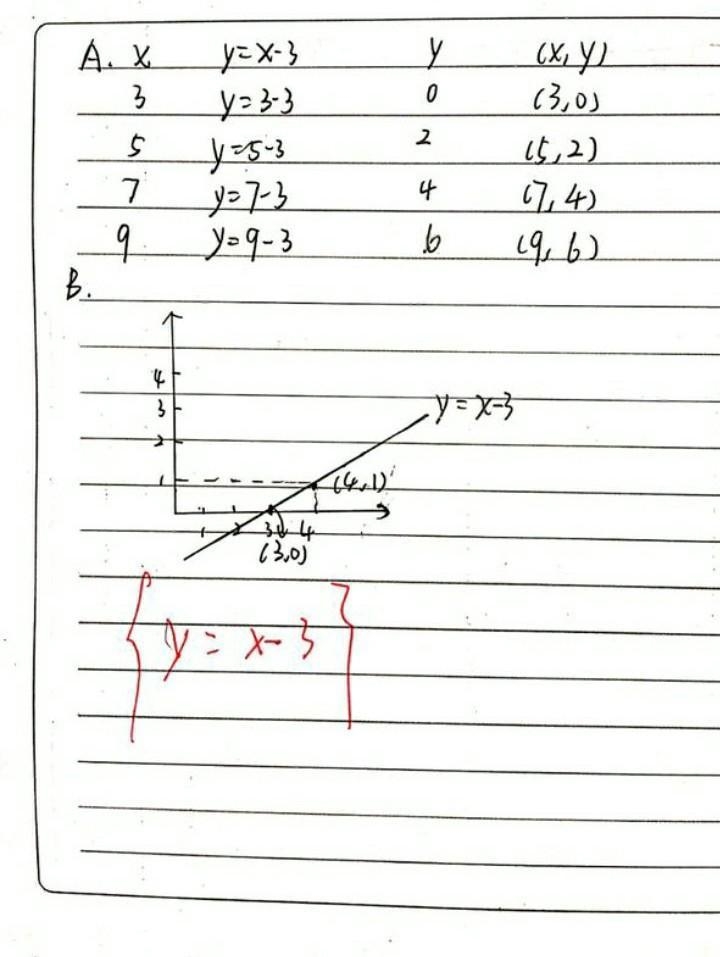 A. x y=x-3 y (x, y)
3 y=3-3 0 (3,0)
5 y=5-3 2 (5,2)
7 y=7-3 4 (7,4)
9 y=9-3 6 (9,6)
B.
4
3
y=x-3
2
1 (4,1)
1 2 3 4
(3,0)
{ y = x-3 }